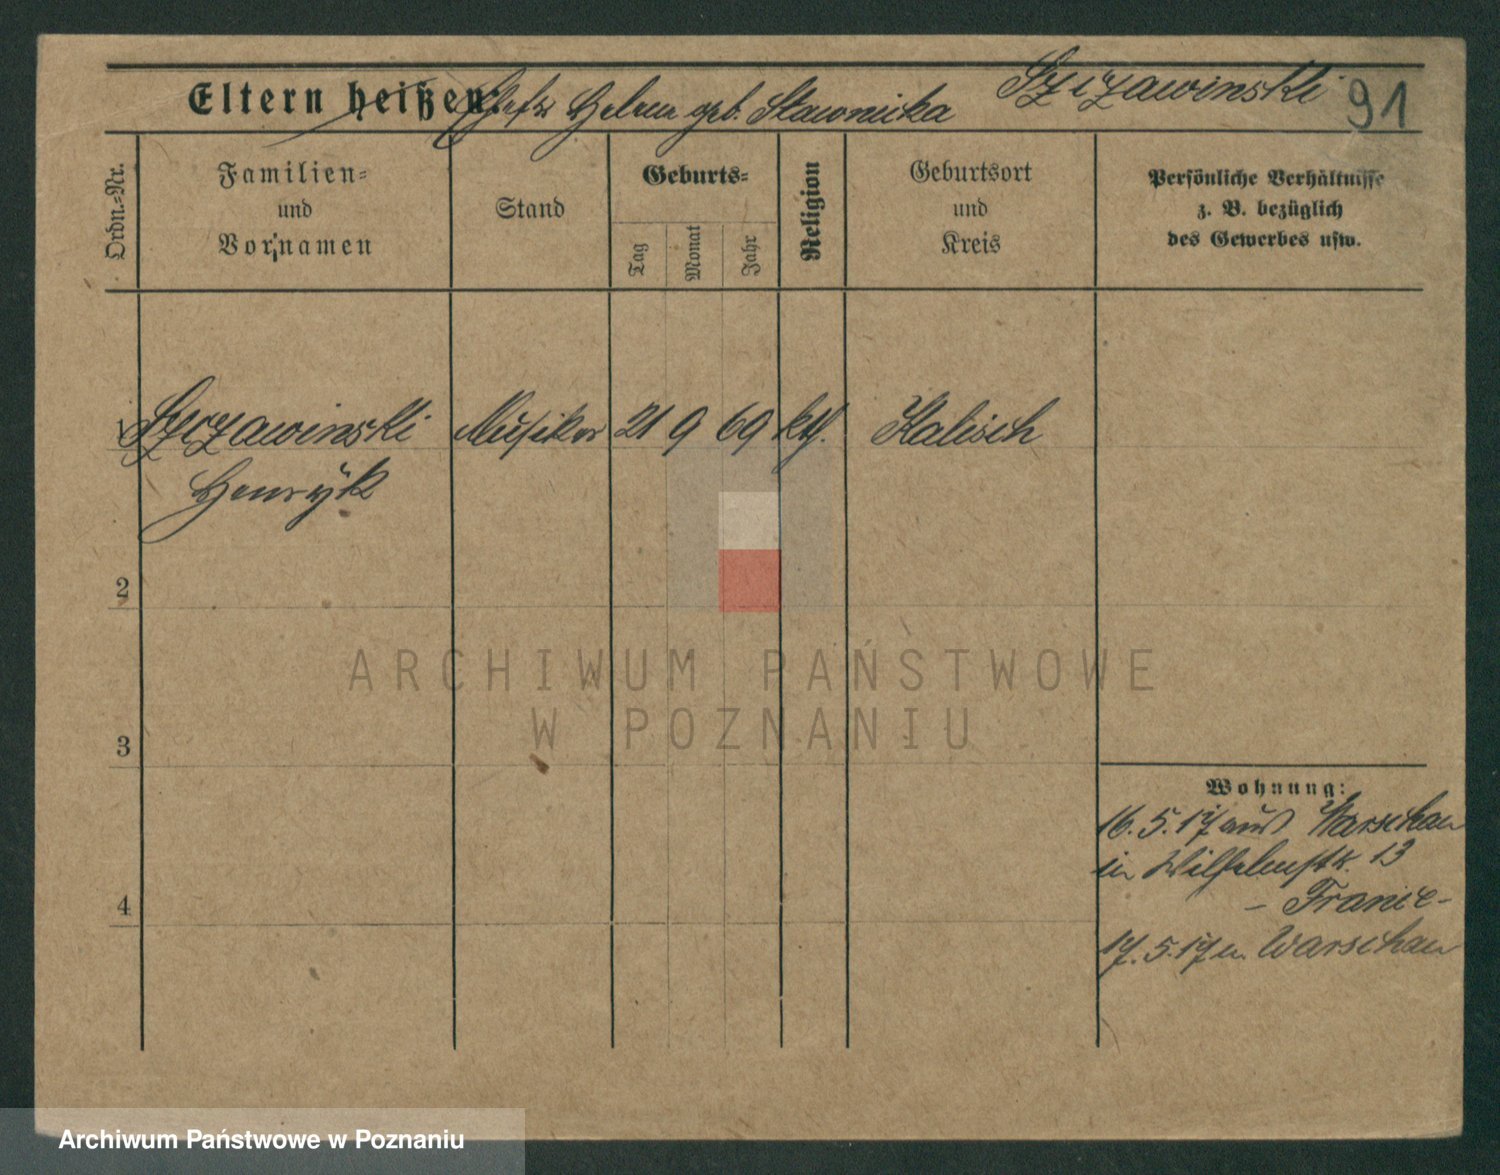 Szczawinski 91
Eltern heißen: Ehefr. Helene geb. Slawnicka
Ordn.-Nr.
Familien-
und
Vornamen
Stand
Geburts-
Tag
Monat
Jahr
Religion
Geburtsort
und
Kreis
Persönliche Verhältnisse
z. B. bezüglich
des Gewerbes usw.
1 Szczawinski Musiker 21 9 69 kth. Kalisch
Henryk
2
3
4
Wohnung:
16.5.17 aus Warschau
in Wilhelmstr. 13
- Franic -
17.5.17 n. Warschau
ARCHIWUM PAŃSTWOWE
W POZNANIU
Archiwum Państwowe w Poznaniu